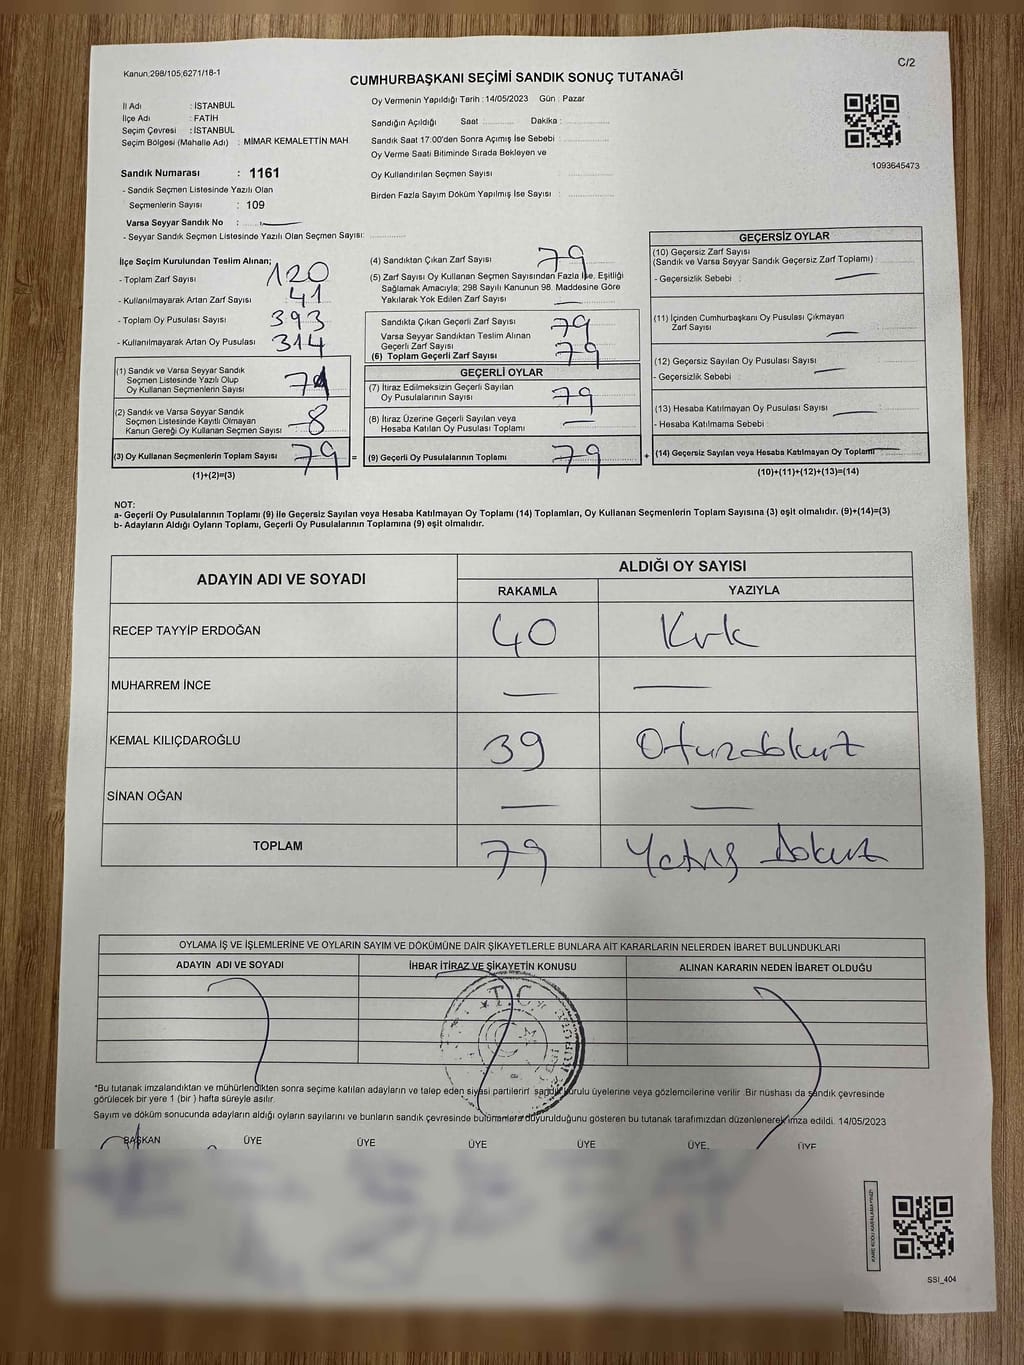 Kanun:298/105;6271/18-1
C/2
CUMHURBAŞKANI SEÇİMİ SANDIK SONUÇ TUTANAĞI
İl Adı : İSTANBUL
İlçe Adı : FATİH
Seçim Çevresi : İSTANBUL
Seçim Bölgesi (Mahalle Adı) : MİMAR KEMALETTİN MAH
Sandık Numarası : 1161
- Sandık Seçmen Listesinde Yazılı Olan
Seçmenlerin Sayısı : 109
Varsa Seyyar Sandık No :
- Seyyar Sandık Seçmen Listesinde Yazılı Olan Seçmen Sayısı:
Oy Vermenin Yapıldığı Tarih : 14/05/2023 Gün : Pazar
Sandığın Açıldığı Saat : Dakika :
Sandık Saat 17:00'den Sonra Açımış İse Sebebi :
Oy Verme Saati Bitiminde Sırada Bekleyen ve
Oy Kullandırılan Seçmen Sayısı :
Birden Fazla Sayım Döküm Yapılmış İse Sayısı :
1093645473
İlçe Seçim Kurulundan Teslim Alınan;
- Toplam Zarf Sayısı : 120
- Kullanılmayarak Artan Zarf Sayısı : 41
- Toplam Oy Pusulası Sayısı : 393
- Kullanılmayarak Artan Oy Pusulası : 314
(1) Sandık ve Varsa Seyyar Sandık
Seçmen Listesinde Yazılı Olup
Oy Kullanan Seçmenlerin Sayısı : 71
(2) Sandık ve Varsa Seyyar Sandık
Seçmen Listesinde Kayıtlı Olmayan
Kanun Gereği Oy Kullanan Seçmen Sayısı : 8
(3) Oy Kullanan Seçmenlerin Toplam Sayısı : 79
(1)+(2)=(3)
(4) Sandıktan Çıkan Zarf Sayısı : 79
(5) Zarf Sayısı Oy Kullanan Seçmen Sayısından Fazla İse, Eşitliği
Sağlamak Amacıyla; 298 Sayılı Kanunun 98. Maddesine Göre
Yakılarak Yok Edilen Zarf Sayısı : —
Sandıkta Çıkan Geçerli Zarf Sayısı : 79
Varsa Seyyar Sandıktan Teslim Alınan
Geçerli Zarf Sayısı
(6) Toplam Geçerli Zarf Sayısı : 79
GEÇERLİ OYLAR
(7) İtiraz Edilmeksizin Geçerli Sayılan
Oy Pusulalarının Sayısı : 79
(8) İtiraz Üzerine Geçerli Sayılan veya
Hesaba Katılan Oy Pusulası Toplamı : —
= (9) Geçerli Oy Pusulalarının Toplamı : 79
GEÇERSİZ OYLAR
(10) Geçersiz Zarf Sayısı
(Sandık ve Varsa Seyyar Sandık Geçersiz Zarf Toplamı) :
- Geçersizlik Sebebi : —
(11) İçinden Cumhurbaşkanı Oy Pusulası Çıkmayan
Zarf Sayısı : —
(12) Geçersiz Sayılan Oy Pusulası Sayısı : —
- Geçersizlik Sebebi :
(13) Hesaba Katılmayan Oy Pusulası Sayısı : —
- Hesaba Katılmama Sebebi :
+ (14) Geçersiz Sayılan veya Hesaba Katılmayan Oy Toplamı —
(10)+(11)+(12)+(13)=(14)
NOT:
a- Geçerli Oy Pusulalarının Toplamı (9) ile Geçersiz Sayılan veya Hesaba Katılmayan Oy Toplamı (14) Toplamları, Oy Kullanan Seçmenlerin Toplam Sayısına (3) eşit olmalıdır. (9)+(14)=(3)
b- Adayların Aldığı Oyların Toplamı, Geçerli Oy Pusulalarının Toplamına (9) eşit olmalıdır.
ADAYIN ADI VE SOYADI
ALDIĞI OY SAYISI
RAKAMLA YAZIYLA
RECEP TAYYİP ERDOĞAN 40 Kırk
MUHARREM İNCE — —
KEMAL KILIÇDAROĞLU 39 Otuzdokuz
SİNAN OĞAN — —
TOPLAM 79 Yetmiş Dokuz
OYLAMA İŞ VE İŞLEMLERİNE VE OYLARIN SAYIM VE DÖKÜMÜNE DAİR ŞİKAYETLERLE BUNLARA AİT KARARLARIN NELERDEN İBARET BULUNDUKLARI
ADAYIN ADI VE SOYADI İHBAR İTİRAZ VE ŞİKAYETİN KONUSU ALINAN KARARIN NEDEN İBARET OLDUĞU
T.C.
*Bu tutanak imzalandıktan ve mühürlendikten sonra seçime katılan adayların ve talep eden siyasi partilerin sandık kurulu üyelerine veya gözlemcilerine verilir. Bir nüshası da sandık çevresinde
görülecek bir yere 1 (bir ) hafta süreyle asılır.
Sayım ve döküm sonucunda adayların aldığı oyların sayılarını ve bunların sandık çevresinde bulunanlara duyurulduğunu gösteren bu tutanak tarafımızdan düzenlenerek imza edildi. 14/05/2023
BAŞKAN ÜYE ÜYE ÜYE ÜYE ÜYE ÜYE
SSI_404